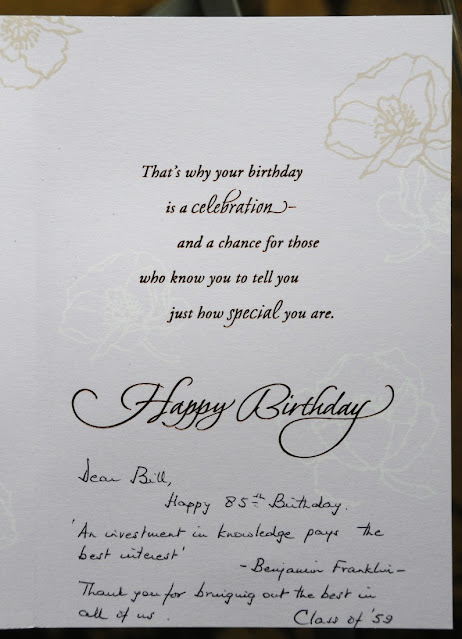 That's why your birthday
is a celebration–
and a chance for those
who know you to tell you
just how special you are.
Happy Birthday
Dear Bill,
Happy 85th Birthday.
'An investment in knowledge pays the
best interest'
- Benjamin Franklin -
Thank you for bringing out the best in
all of us.
Class of '59